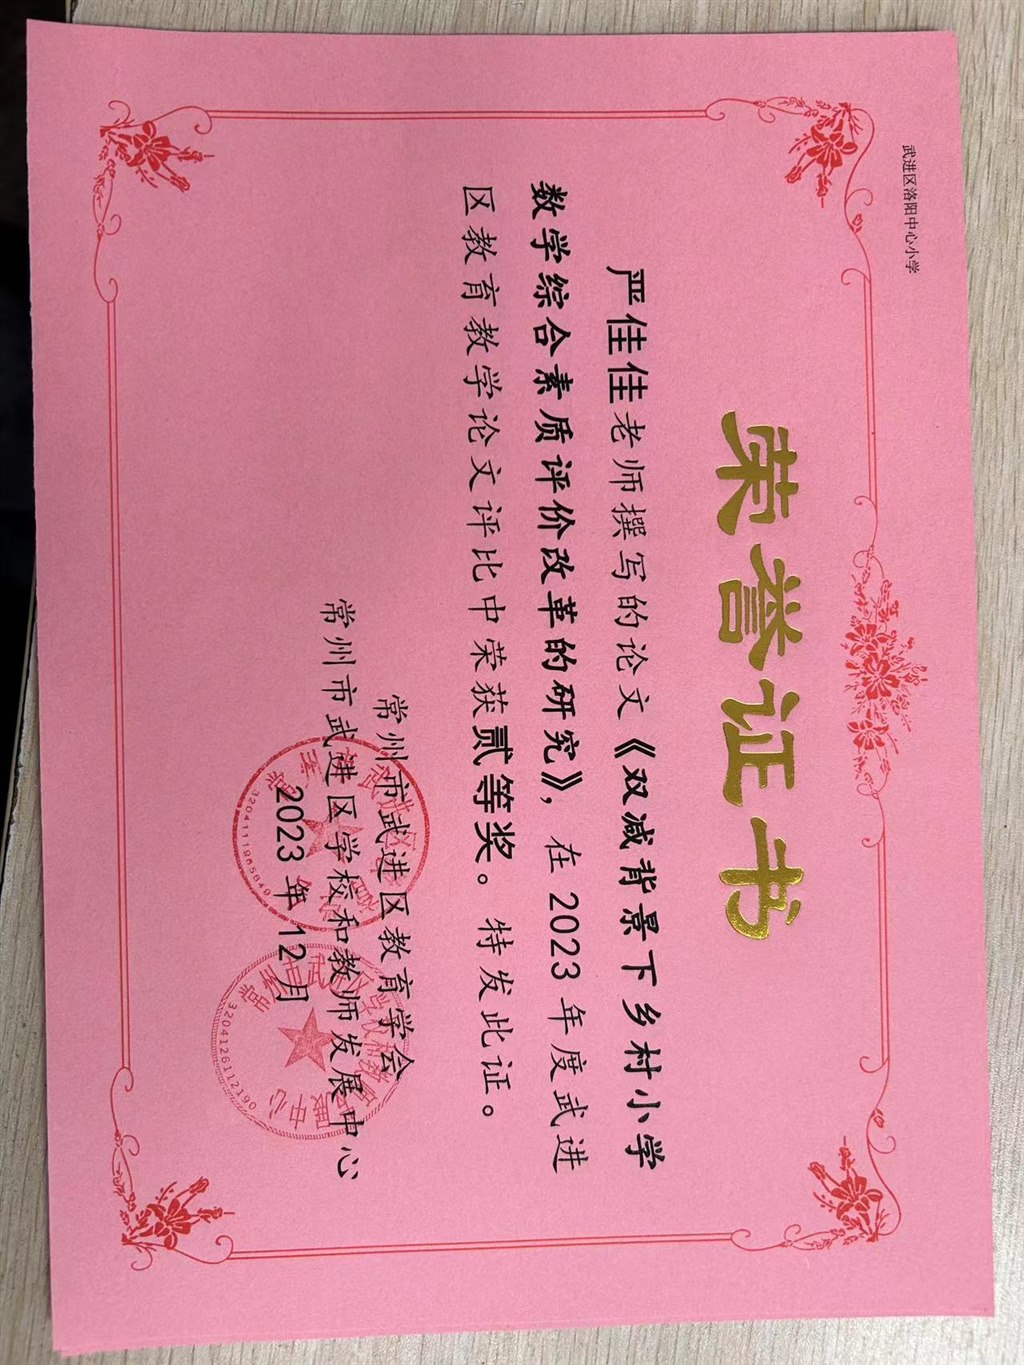 武进区洛阳中心小学
荣誉证书
严佳佳老师撰写的论文《双减背景下乡村小学
数学综合素质评价改革的研究》，在2023年度武进
区教育教学论文评比中荣获贰等奖。特发此证。
常州市武进区教育学会
常州市武进区学校和教师发展中心
2023年12月
3204111985849
3204126112190